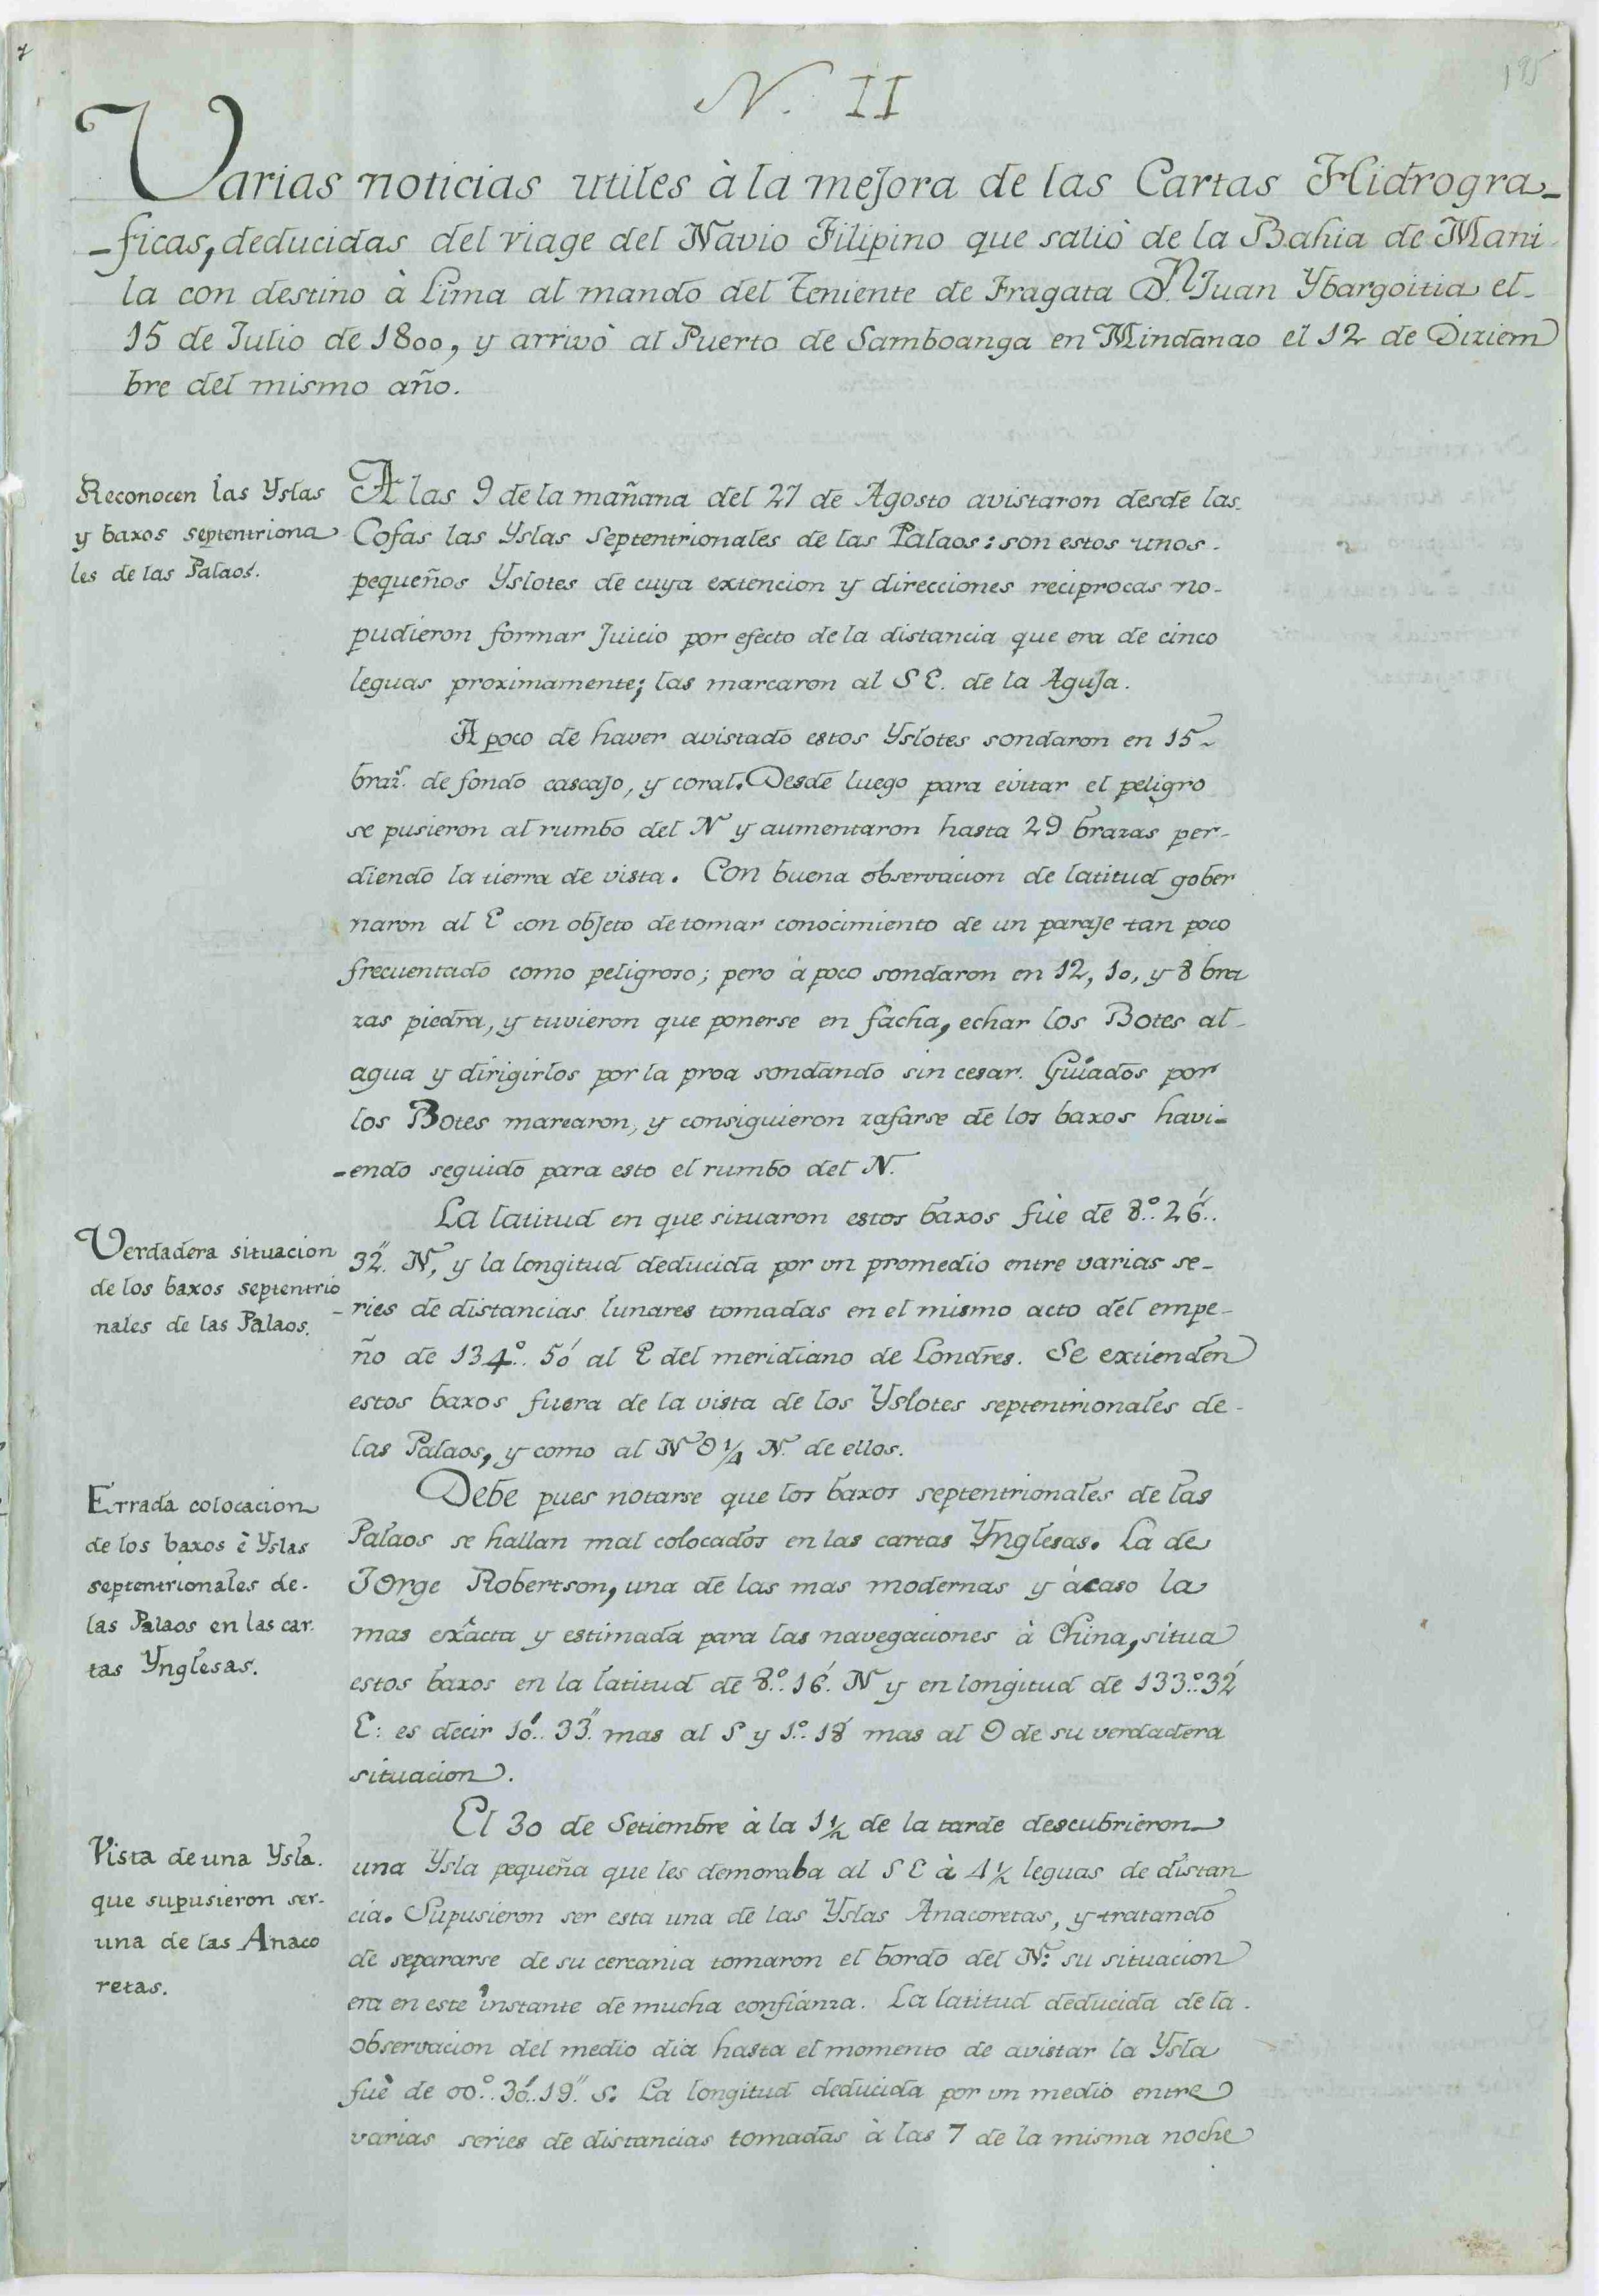 195
N. II
Varias noticias utiles à la mejora de las Cartas Hidrogra-
-ficas, deducidas del viage del Navio Filipino que saliò de la Bahia de Mani
la con destino à Lima al mando del Teniente de Fragata D.n Juan Ybargoitia el
15 de Julio de 1800, y arrivò al Puerto de Samboanga en Mindanao el 12 de Diziem
bre del mismo año.
Reconocen las Yslas
y baxos septentriona
les de las Palaos.
A las 9 de la mañana del 27 de Agosto avistaron desde las
Cofas las Yslas Septentrionales de las Palaos: son estos unos
pequeños Yslotes de cuya extencion y direcciones reciprocas no
pudieron formar Juicio por efecto de la distancia que era de cinco
leguas proximamente; las marcaron al S E. de la Aguja.
A poco de haver avistado estos Yslotes sondaron en 15
braz.s de fondo cascajo, y coral. Desde luego para evitar el peligro
se pusieron al rumbo del N y aumentaron hasta 29 brazas per-
diendo la tierra de vista. Con buena observacion de latitud gober
naron al E con objeto de tomar conocimiento de un paraje tan poco
frecuentado como peligroso; pero à poco sondaron en 12, 10, y 8 bra
zas piedra, y tuvieron que ponerse en facha, echar los Botes al
agua y dirigirlos por la proa sondando sin cesar. Guiados por
los Botes marearon, y consiguieron zafarse de los baxos havi-
-endo seguido para esto el rumbo del N.
Verdadera situacion
de los baxos septentrio
nales de las Palaos.
La latitud en que situaron estos baxos fuè de 8.° 26'
32" N, y la longitud deducida por un promedio entre varias se-
-ries de distancias lunares tomadas en el mismo acto del empe-
ño de 134.° 50' al E del meridiano de Londres. Se extienden
estos baxos fuera de la vista de los Yslotes septentrionales de
las Palaos, y como al N O ¼ N. de ellos.
Errada colocacion
de los baxos è Yslas
septentrionales de
las Palaos en las car
tas Ynglesas.
Debe pues notarse que los baxos septentrionales de las
Palaos se hallan mal colocados en las cartas Ynglesas. La de
Jorge Robertson, una de las mas modernas y àcaso la
mas exâcta y estimada para las navegaciones à China, situa
estos baxos en la latitud de 8.° 16' N y en longitud de 133.° 32'
E: es decir 10' 33" mas al S y 1.° 18' mas al O de su verdadera
situacion.
Vista de una Ysla
que supusieron ser
una de las Anaco
retas.
El 30 de Setiembre à la 1 ½ de la tarde descubrieron
una Ysla pequeña que les demoraba al S E à 4 ½ leguas de distan
cia. Supusieron ser esta una de las Yslas Anacoretas, y tratando
de separarse de su cercania tomaron el bordo del N: su situacion
era en este instante de mucha confianza. La latitud deducida de la
observacion del medio dia hasta el momento de avistar la Ysla
fuè de 00.° 30' 19" S. La longitud deducida por un medio entre
varias series de distancias tomadas à las 7 de la misma noche